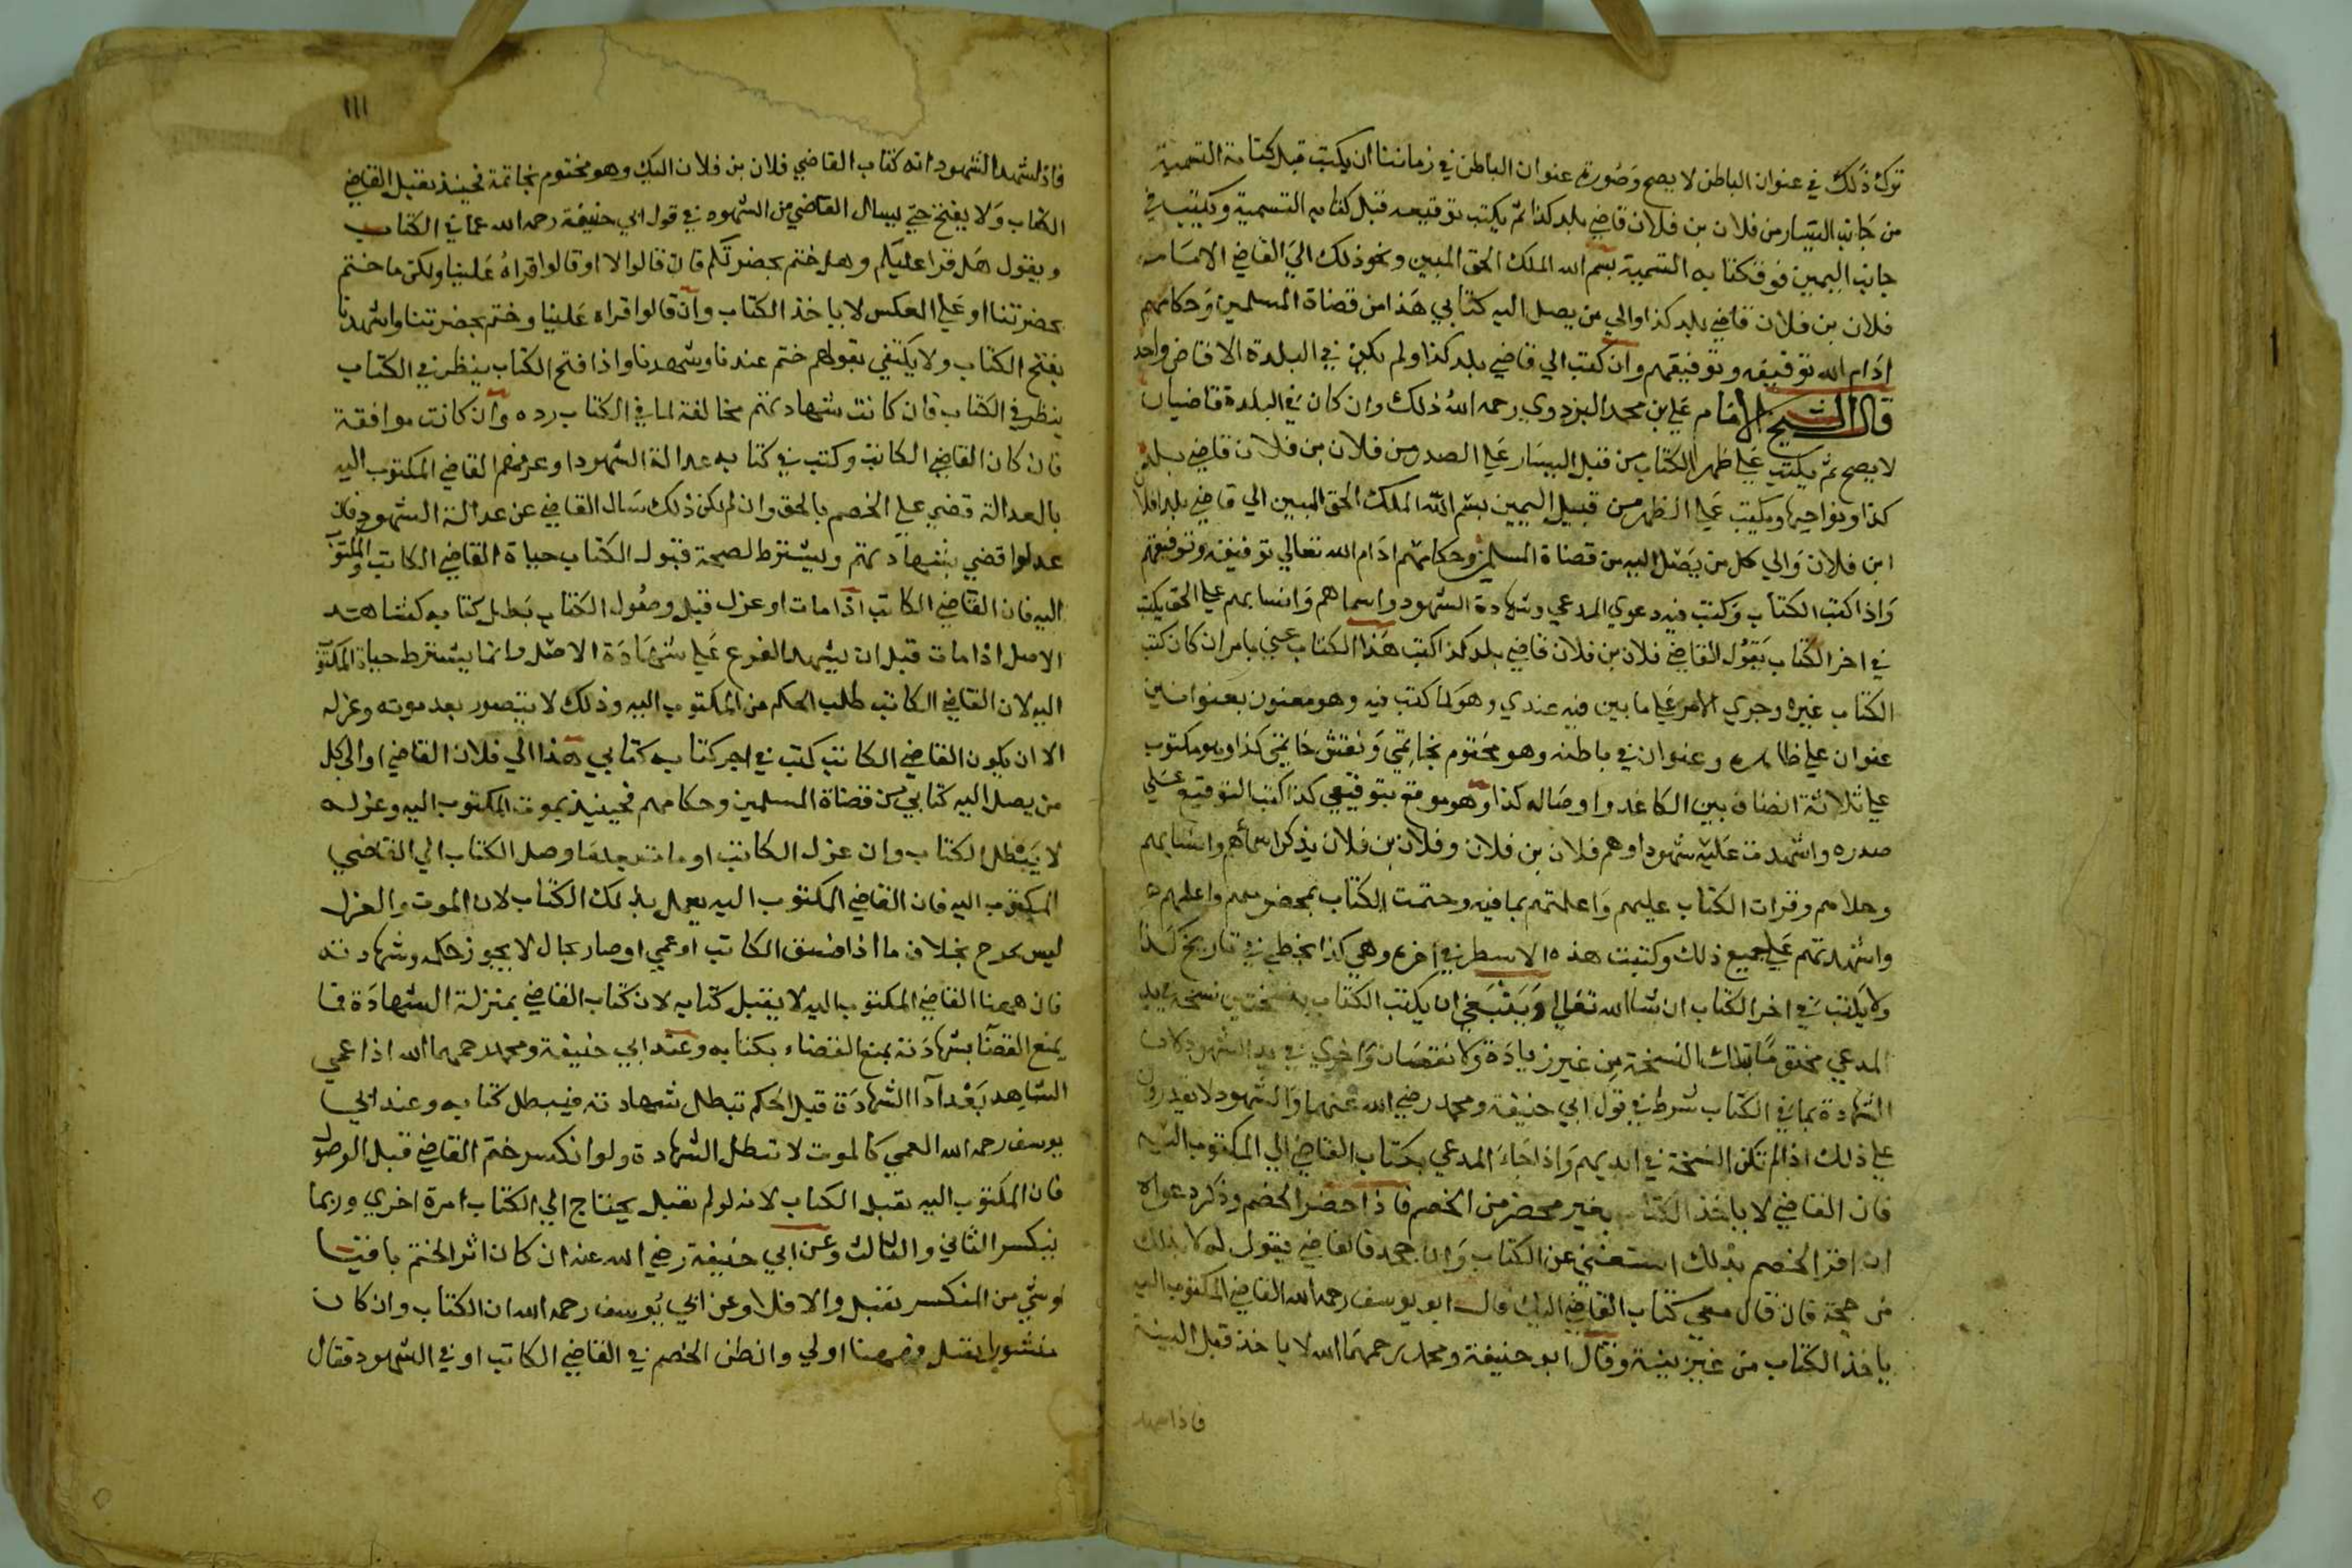 ترك ذلك في عنوان الباطن لا يصح وصورة عنوان الباطن في زماننا ان يكتب قبل كتابة التسمية
من جانب اليسار من فلان بن فلان قاضي بلد كذا ثم يكتب توقيعه قبل كتابه التسمية ويكتب في
جانب اليمين فوق كتابه التسمية بسم الله الملك الحق المبين ونحو ذلك الي القاضي الامام
فلان بن فلان قاضي بلد كذا والي من يصل اليه كتابي هذا من قضاة المسلمين وحكامهم
ادام الله توفيقه وتوفيقهم وان كتب الي قاضي بلد كذا ولم يكن في البلدة الا قاض واحد
قال الشيخ الامام علي بن محمد البزدوي رحمه الله ذلك وان كان في البلدة قاضيان
لا يصح ثم يكتب علي ظهر الكتاب من قبل اليسار علي الصدر من فلان بن فلان قاضي بلد
كذا ونواحيها ويكتب علي الظهر من قبيل اليمين بسم الله الملك الحق المبين الي قاضي بلد فلان
ابن فلان والي كل من يصل اليه من قضاة المسلمين وحكامهم ادام الله تعالي توفيقه وتوفيقهم
واذا كتب الكتاب وكتب فيه دعوي المدعي وشهادة الشهود واسماهم وانسابهم علي الحق يكتب
في اخر الكتاب يقول القاضي فلان بن فلان قاضي بلد كذا كتب هذا الكتاب عني بامر ان كان كتب
الكتاب غيره وجري الامر علي ما بين فيه عندي وهو كما كتب فيه وهو معنون بعنوانين
عنوان علي ظاهره وعنوان في باطنه وهو مختوم بخاتمي ونقش خاتمي كذا وهو مكتوب
علي ثلاثة انصاف بين الكاغد واوصاله كذا وهو موقع بتوقيعي كذا كتب التوقيع علي
صدره واشهدت عليه شهودا وهم فلان بن فلان وفلان بن فلان يذكر اسماهم وانسابهم
وحلاهم وقرات الكتاب عليهم واعلمتهم بما فيه وختمت الكتاب بمحضر منهم واعلمهم
واشهدتهم علي جميع ذلك وكتبت هذه الاسطر في اخره وهي كذا بخطي في تاريخ كذا
ولا يكتب في اخر الكتاب ان شا الله تعالي وينبغي ان يكتب الكتاب بنسختين نسخة بيد
المدعي مختومة بتلك النسخة من غير زيادة ولا نقصان واخري في يد الشهود لان
الشهادة بما في الكتاب شرط في قول ابي حنيفة ومحمد رضي الله عنهما والشهود لا يقدرون
علي ذلك اذا لم تكن النسخة في ايديهم واذا جاء المدعي بكتاب القاضي الي المكتوب اليه
فان القاضي لا ياخذ الكتاب بغير محضر من الخصم فاذا حضر الخصم وذكر دعواه
ان اقر الخصم بذلك استغني عن الكتاب وان جحد فالقاضي يقول له لا بذلك
من حجة فان قال معي كتاب القاضي اليك قال ابو يوسف رحمه الله القاضي المكتوب اليه
ياخذ الكتاب من غير بينة وقال ابو حنيفة ومحمد رحمهما الله لا ياخذ قبل البينة
فاذا شهد
١١١
فاذا شهد الشهود انه كتاب القاضي فلان بن فلان اليك وهو مختوم بخاتمة فحينيذ يقبل القاضي
الكتاب ولا يفتح حتي يسال القاضي من الشهود في قول ابي حنيفة رحمه الله عما في الكتاب
ويقول هل قرا عليكم وهل ختم بحضرتكم فان قالوا لا او قالوا قراه علينا ولكن ما ختم
بحضرتنا او علي العكس لا ياخذ الكتاب وان قالوا قراه علينا وختم بحضرتنا واشهدنا
يفتح الكتاب ولا يكتفي بقولهم ختم عندنا وشهدنا واذا فتح الكتاب ينظر في الكتاب
ينظر في الكتاب فان كانت شهادتهم مخالفة لما في الكتاب رده وان كانت موافقة
فان كان القاضي الكاتب وكتب في كتابه عدالة الشهود او عرفهم القاضي المكتوب اليه
بالعدالة قضي علي الخصم بالحق وان لم يكن ذلك سال القاضي عن عدالة الشهود فان
عدلوا قضي بشهادتهم ويشترط لصحة قبول الكتاب حياة القاضي الكاتب والمكتوب
اليه فان القاضي الكاتب اذا مات او عزل قبل وصول الكتاب بطل كتابه كشاهد
الاصل اذا مات قبل ان يشهد الفرع علي شهادة الاصل وانما يشترط حياة المكتوب
اليه لان القاضي الكاتب طلب الحكم من المكتوب اليه وذلك لا يتصور بعد موته وعزله
الا ان يكون القاضي الكاتب كتب في اخر كتابه كتابي هذا الي فلان القاضي او الي كل
من يصل اليه كتابي من قضاة المسلمين وحكامهم فحينيذ بموت المكتوب اليه وعزله
لا يبطل الكتاب وان عزل الكاتب او مات بعدما وصل الكتاب الي القاضي
المكتوب اليه فان القاضي المكتوب اليه يعمل بذلك الكتاب لان الموت والعزل
ليس بجرح بخلاف ما اذا فسق الكاتب او عمي او صار بحال لا يجوز حكمه وشهادته
فان ههنا القاضي المكتوب اليه لا يقبل كتابه لان كتاب القاضي بمنزلة الشهادة فما
يمنع القضا بشهادته يمنع القضاء بكتابه وعند ابي حنيفة ومحمد رحمهما الله اذا عمي
الشاهد بعد ادا الشهادة قبل الحكم تبطل شهادته فيبطل كتابه وعند ابي
يوسف رحمه الله العمي كالموت لا تبطل الشهادة ولو انكسر ختم القاضي قبل الوصول
فان المكتوب اليه يقبل الكتاب لانه لو لم يقبل يحتاج الي الكتاب مرة اخري وربما
ينكسر الثاني والثالث وعن ابي حنيفة رضي الله عنه ان كان اثر الختم باقيا
وشي من المنكسر يقبل والا فلا وعن ابي يوسف رحمه الله ان الكتاب وان كان
منشورا يقبل فههنا اولي وان طعن الخصم في القاضي الكاتب او في الشهود فقال